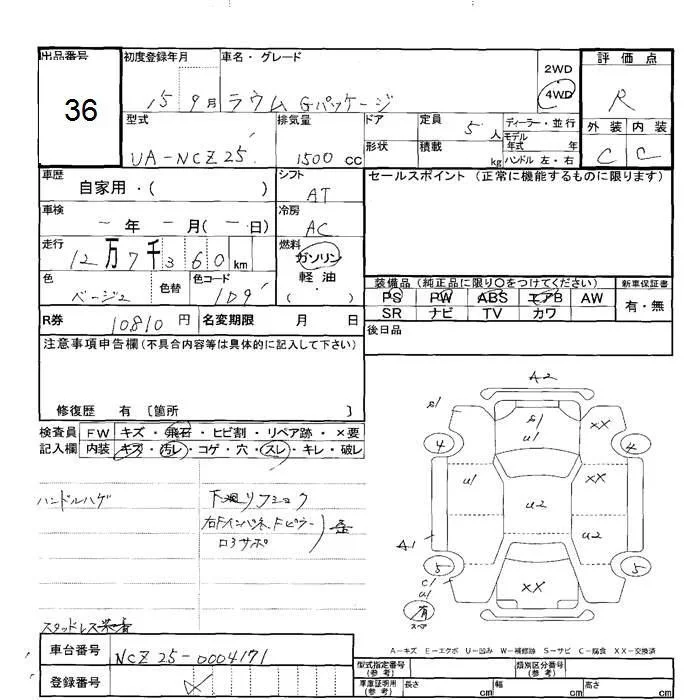 出品番号 初度登録年月 車名・グレード 2WD 評価点
36 15 9月 ラウム Gパッケージ 4WD R
型式 排気量 ドア 定員 5人 ディーラー・並行 外装 内装
UA-NCZ25 1500cc 形状 積載 kg モデル年式 年 ハンドル 左・右 C C
車歴 自家用・( ) シフト AT セールスポイント(正常に機能するものに限ります)
車検 - 年 - 月(-日) 冷房 AC
走行 12万7千360km 燃料 ガソリン 軽油 ( )
装備品(純正品に限り○をつけてください) 新車保証書
色 ベージュ 色替 色コード 1D9 PS PW ABS エアB AW 有・無
SR ナビ TV カワ
R券 10810円 名変期限 月 日 後日品
注意事項申告欄(不具合内容等は具体的に記入して下さい)
修復歴 有 〔箇所 〕
検査員 FW キズ・飛石・ヒビ割・リペア跡・×要
記入欄 内装 キズ・汚レ・コゲ・穴・スレ・キレ・破レ
A2
S1 S1 XX
4 U1 4
U1 XX
U2
A1 U2
5 5
C1 XX
U1
有
スペア
ハンドルハゲ 下廻リフショク
右Fインパネ、Fピラー
ロアサポ
スタッドレス装着
A-キズ E-エクボ U-凹み W-補修跡 S-サビ C-腐食 XX-交換済
車台番号 NCZ25-0004171
型式指定番号(参考) 類別区分番号(参考)
登録番号 車庫証明用(参考) 長さ cm 幅 cm 高さ cm